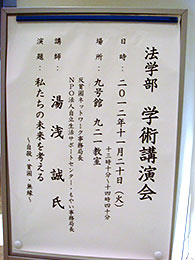 法学部 学術講演会
日時:二〇一二年十一月二十日(火)
十三時十分～十四時四十分
場所:九号館 九二一教室
反貧困ネットワーク事務局長
NPO法人自立生活サポートセンター・もやい事務局長
講師:湯浅 誠 氏
演題:私たちの未来を考える
～自殺・貧困・無縁～